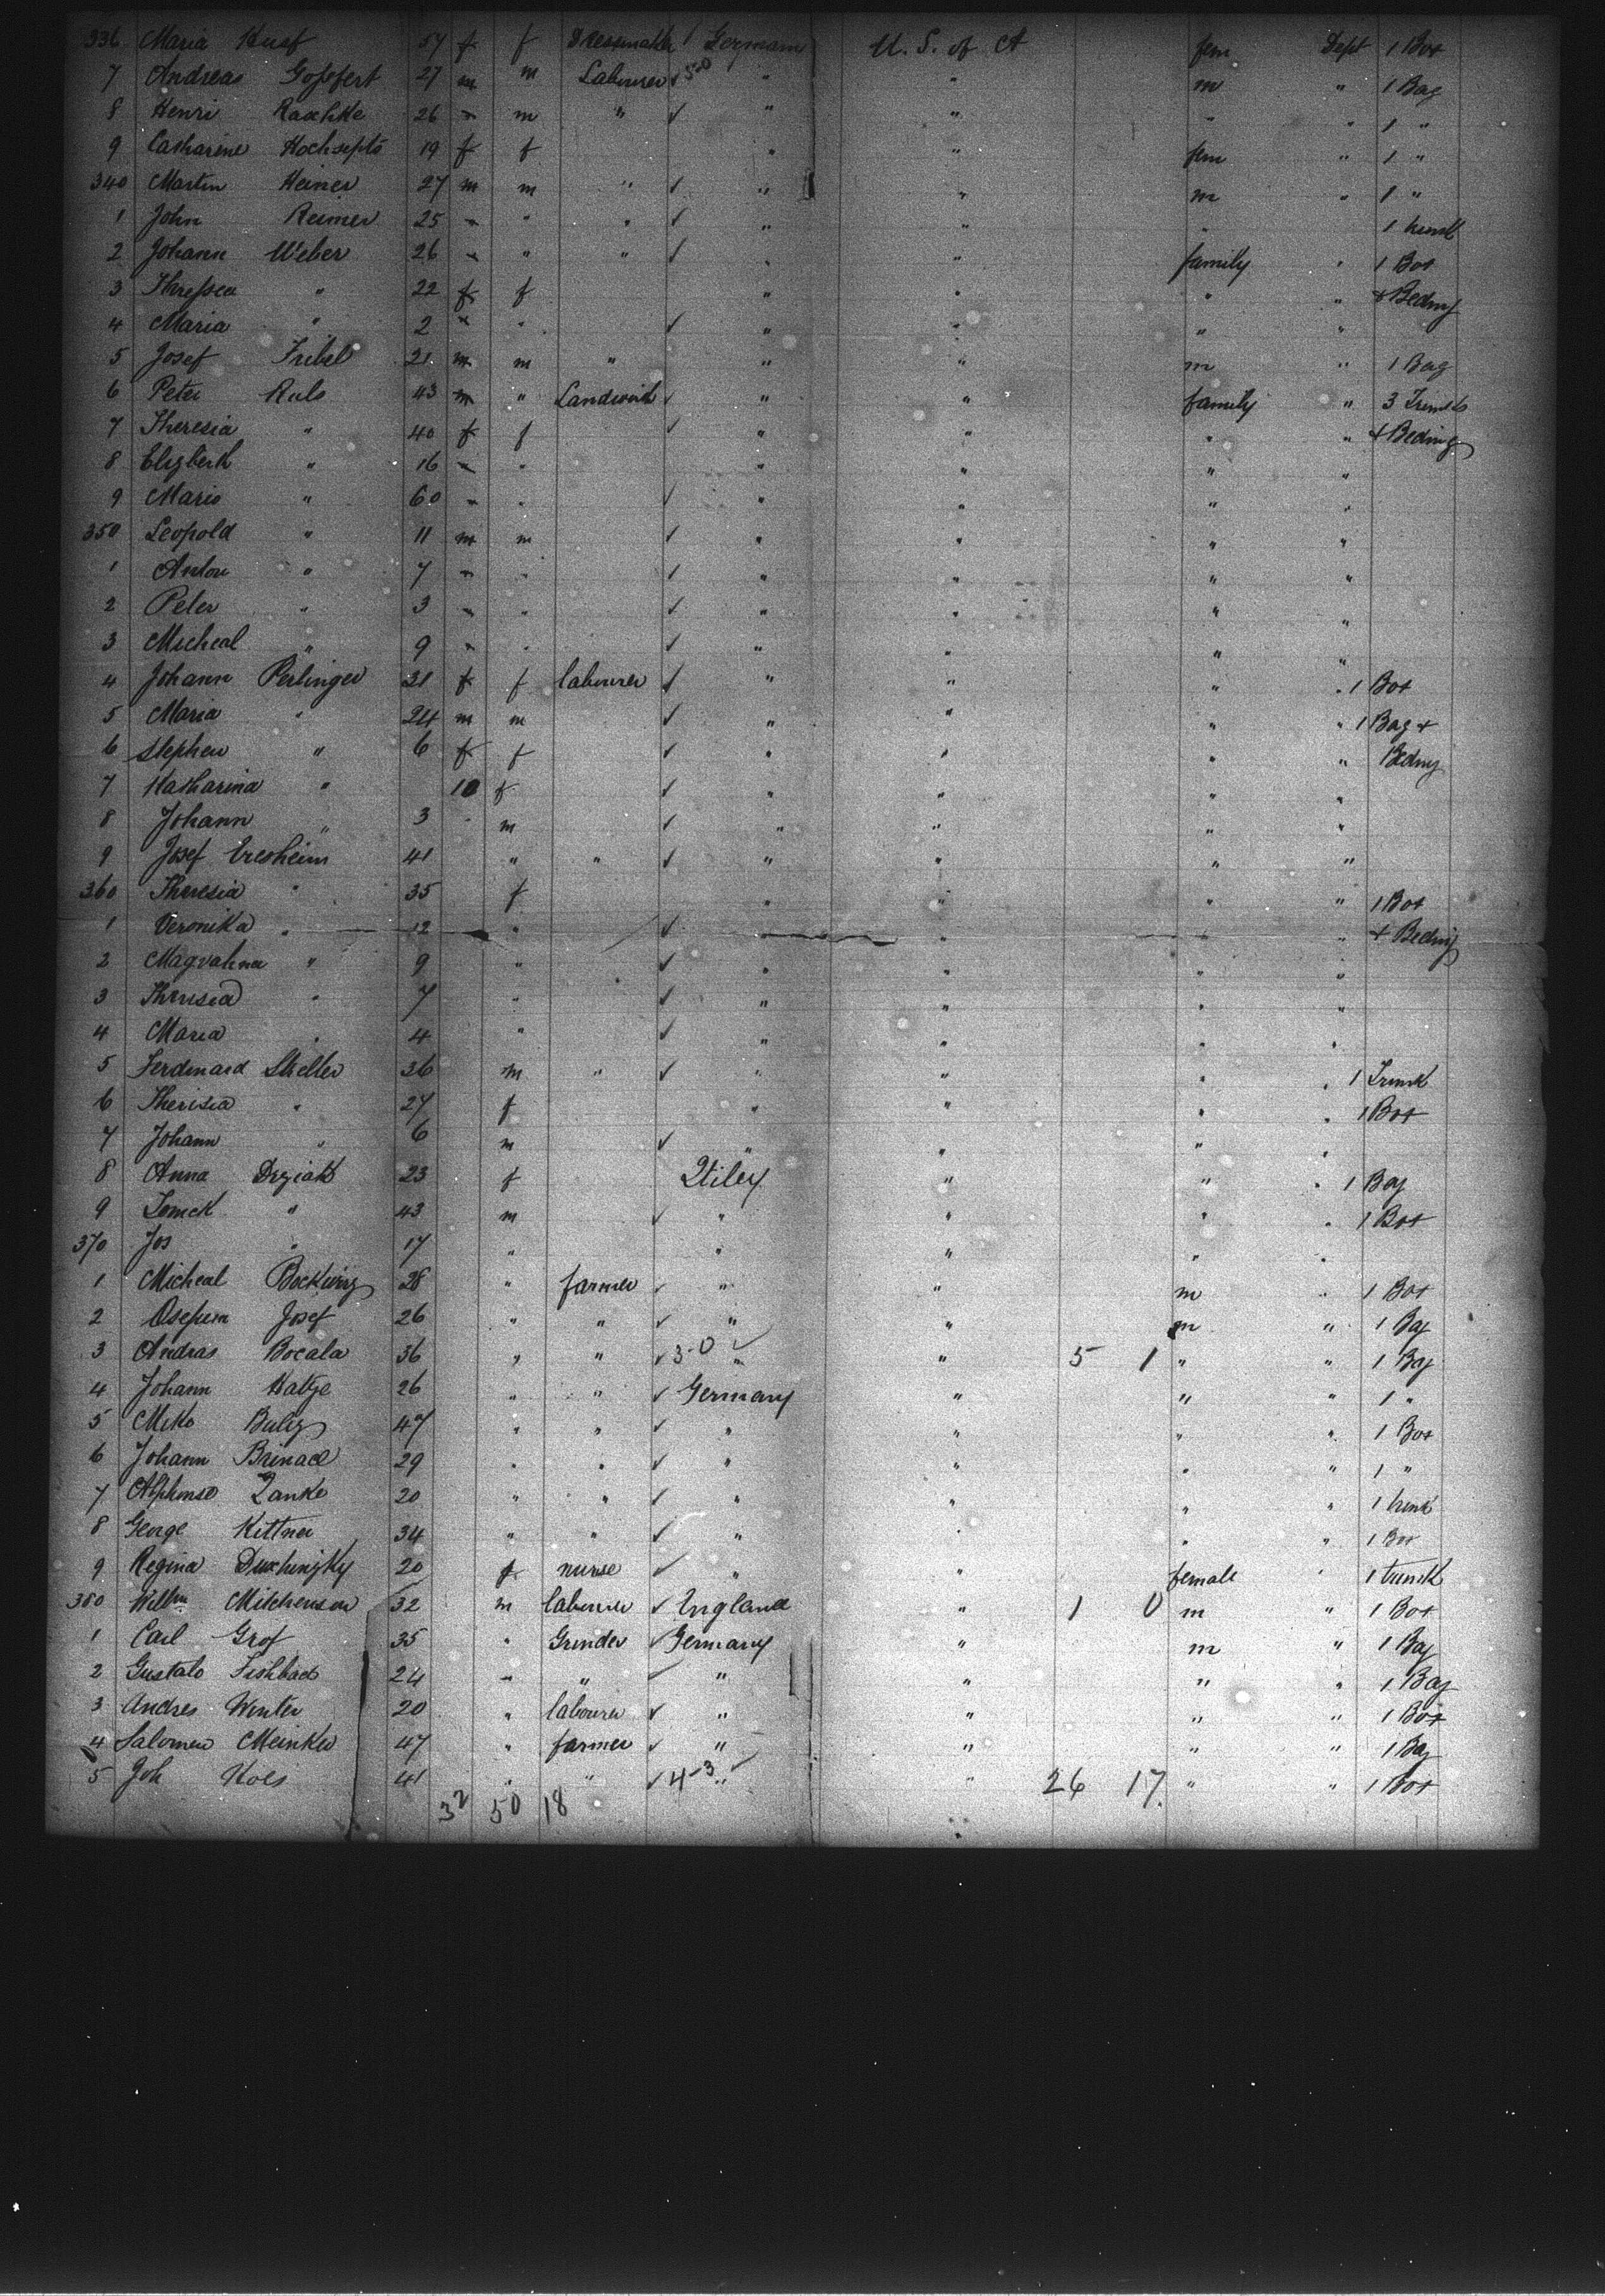 336 Maria Kusf 57 f f Dressmaker Germany U. S. of A fem Dept 1 Box
7 Andreas Gossfert 27 m m Labourer 5-0 " " m " 1 Bag
8 Henri Raschke 26 " m " " " " " 1 "
9 Catharine 19 f f " " fem " 1 "
340 Martin Heiner 27 m m " " " m " 1 "
1 John Reimer 25 " " " " " " 1 trunk
2 Johann Weber 26 " " " " " family " 1 Box
3 " 22 f f " " " " + Beding
4 Maria " 2 " " " " " "
5 Josef Fribel 21 m m " " " m " 1 Bag
6 Peter Ruls 43 m " Landwirth " " family " 3 Trunks
7 Theresia " 40 f f " " " " + Beding
8 Elizbeth " 16 " " " " " "
9 Maria " 60 " " " " " "
350 Leopold " 11 m m " " " "
1 Anton " 7 " " " " " "
2 Peter " 3 " " " " " "
3 Micheal " 9 " " " " " "
4 Johann Perlinger 31 f f labourer " " " " 1 Box
5 Maria " 24 m m " " " " 1 Bag +
6 Stephen " 6 f f " " " " Bedng
7 Katharina " 10 f " " " "
8 Johann " 3 " m " " " "
9 Josef Eresheim 41 " " " " " "
360 Theresia " 35 f " " " " 1 Box
1 Veronika " 12 " " " " + Beding
2 Magdalena " 9 " " " " "
3 Theresia " 7 " " " " "
4 Maria " 4 " " " " "
5 Ferdinand 36 m " " " " " 1 Trunk
6 Therisia " 27 f " " " " 1 Box
7 Johann " 6 m " " " "
8 Anna Dryiak 23 f " " " 1 Bag
9 Tomek " 43 m " " " " 1 Box
370 Jos " 17 " " " " "
1 Micheal 28 " farmer " " m " 1 Box
2 Josef 26 " " " " m " 1 Bag
3 Andras Bocala 36 " " 3-0 " " 5 1 " " 1 Bag
4 Johann Katze 26 " " Germany " " " 1 "
5 Miko Bulig 47 " " " " " " 1 Box
6 Johann 29 " " " " " " 1 "
7 Alphonse Zanke 20 " " " " " " 1 trunk
8 George Kittner 34 " " " " " " 1 Box
9 Regina 20 f nurse " " female " 1 trunk
380 Willm Mitchenson 32 m labourer England " 1 0 m " 1 Box
1 Carl Grof 35 " Grinder Germany " m " 1 Bag
2 Gustalo Fishbach 24 " " " " " 1 Bag
3 Andres Winter 20 " labourer " " " " 1 Box
4 Salomen Meinker 47 " farmer " " " " 1 Bag
5 Joh Kols 41 " " 4-3 " " 26 17 " " 1 Box
32 50 18